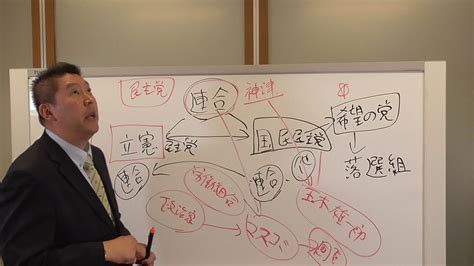 民主党
連合
神津
希望の党
立憲民主党
国民民主党
落選組
連合
労働組合
連合
政治家
玉木雄一郎
マスゴミ